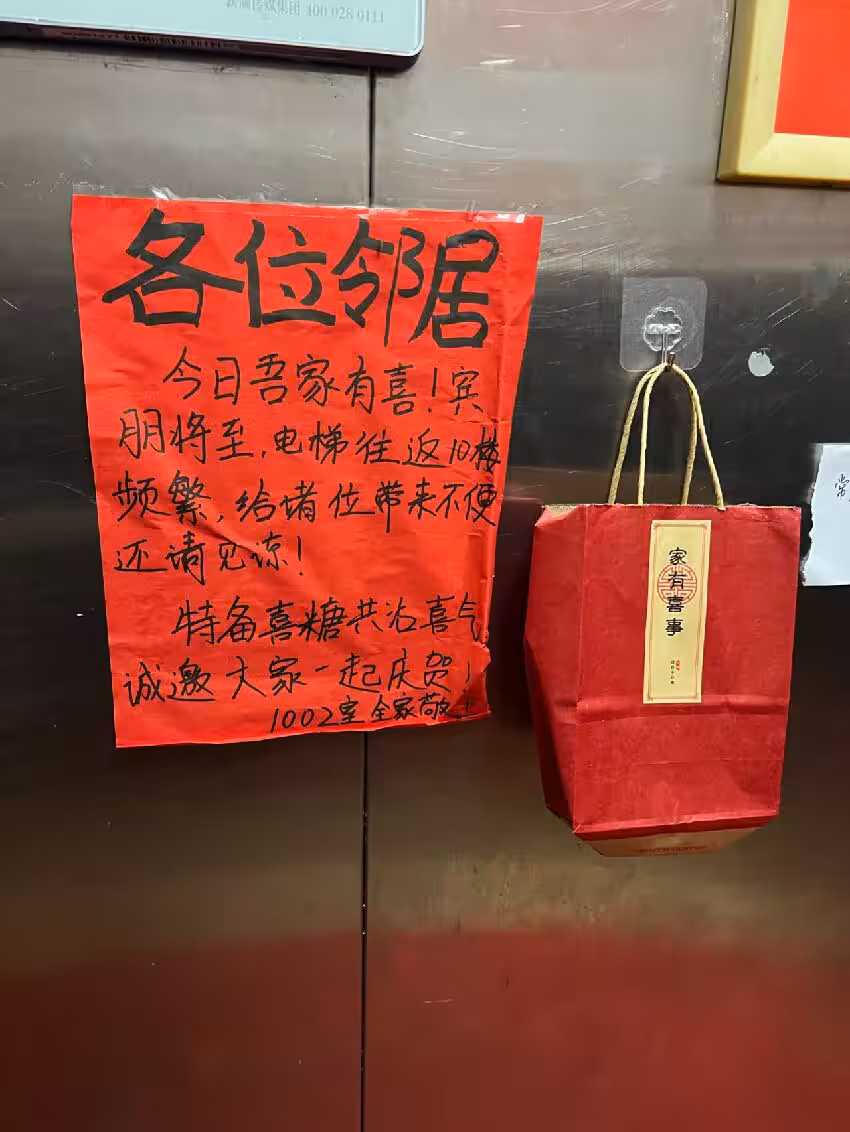 新潮传媒集团 400 028 0111
各位邻居
今日吾家有喜!宾
朋将至,电梯往返10楼
频繁,给诸位带来不便
还请见谅!
特备喜糖共沾喜气
诚邀大家一起庆贺!
1002室 全家敬上
家有喜事
常